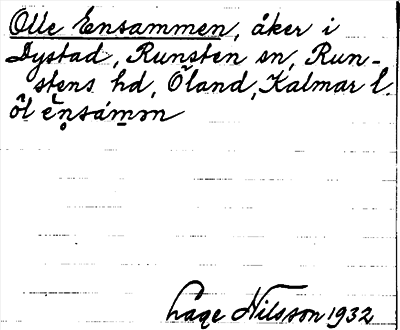 Olle Ensammen, åker i
Dystad, Runsten sn, Run-
stens hd, Öland, Kalmar l.
ö̂l ensamən
Låge Nilsson 1932